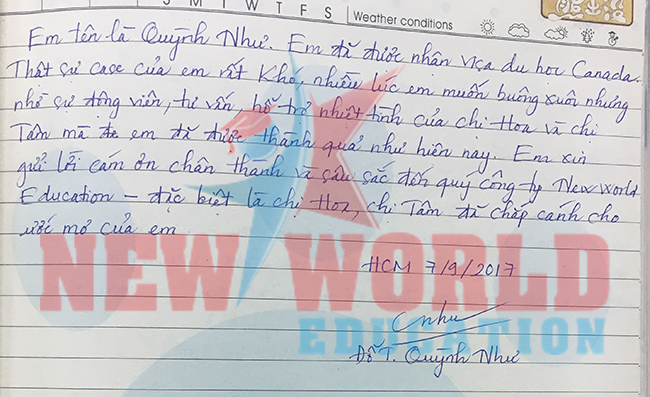 M T W T F S | Weather conditions
Em tên là Quỳnh Như. Em đã được nhận visa du học Canada.
Thật sự case của em rất khó, nhiều lúc em muốn buông xuôi nhưng
nhờ sự động viên, tư vấn, hỗ trợ nhiệt tình của chị Hoa và chị
Tâm mà em đã được thành quả như hiện nay. Em xin
gửi lời cảm ơn chân thành và sâu sắc đến quý công ty New World
Education – đặc biệt là chị Hoa, chị Tâm đã chắp cánh cho
ước mơ của em
NEW WORLD
EDUCATION
HCM 7/9/2017
Như
Đỗ T. Quỳnh Như